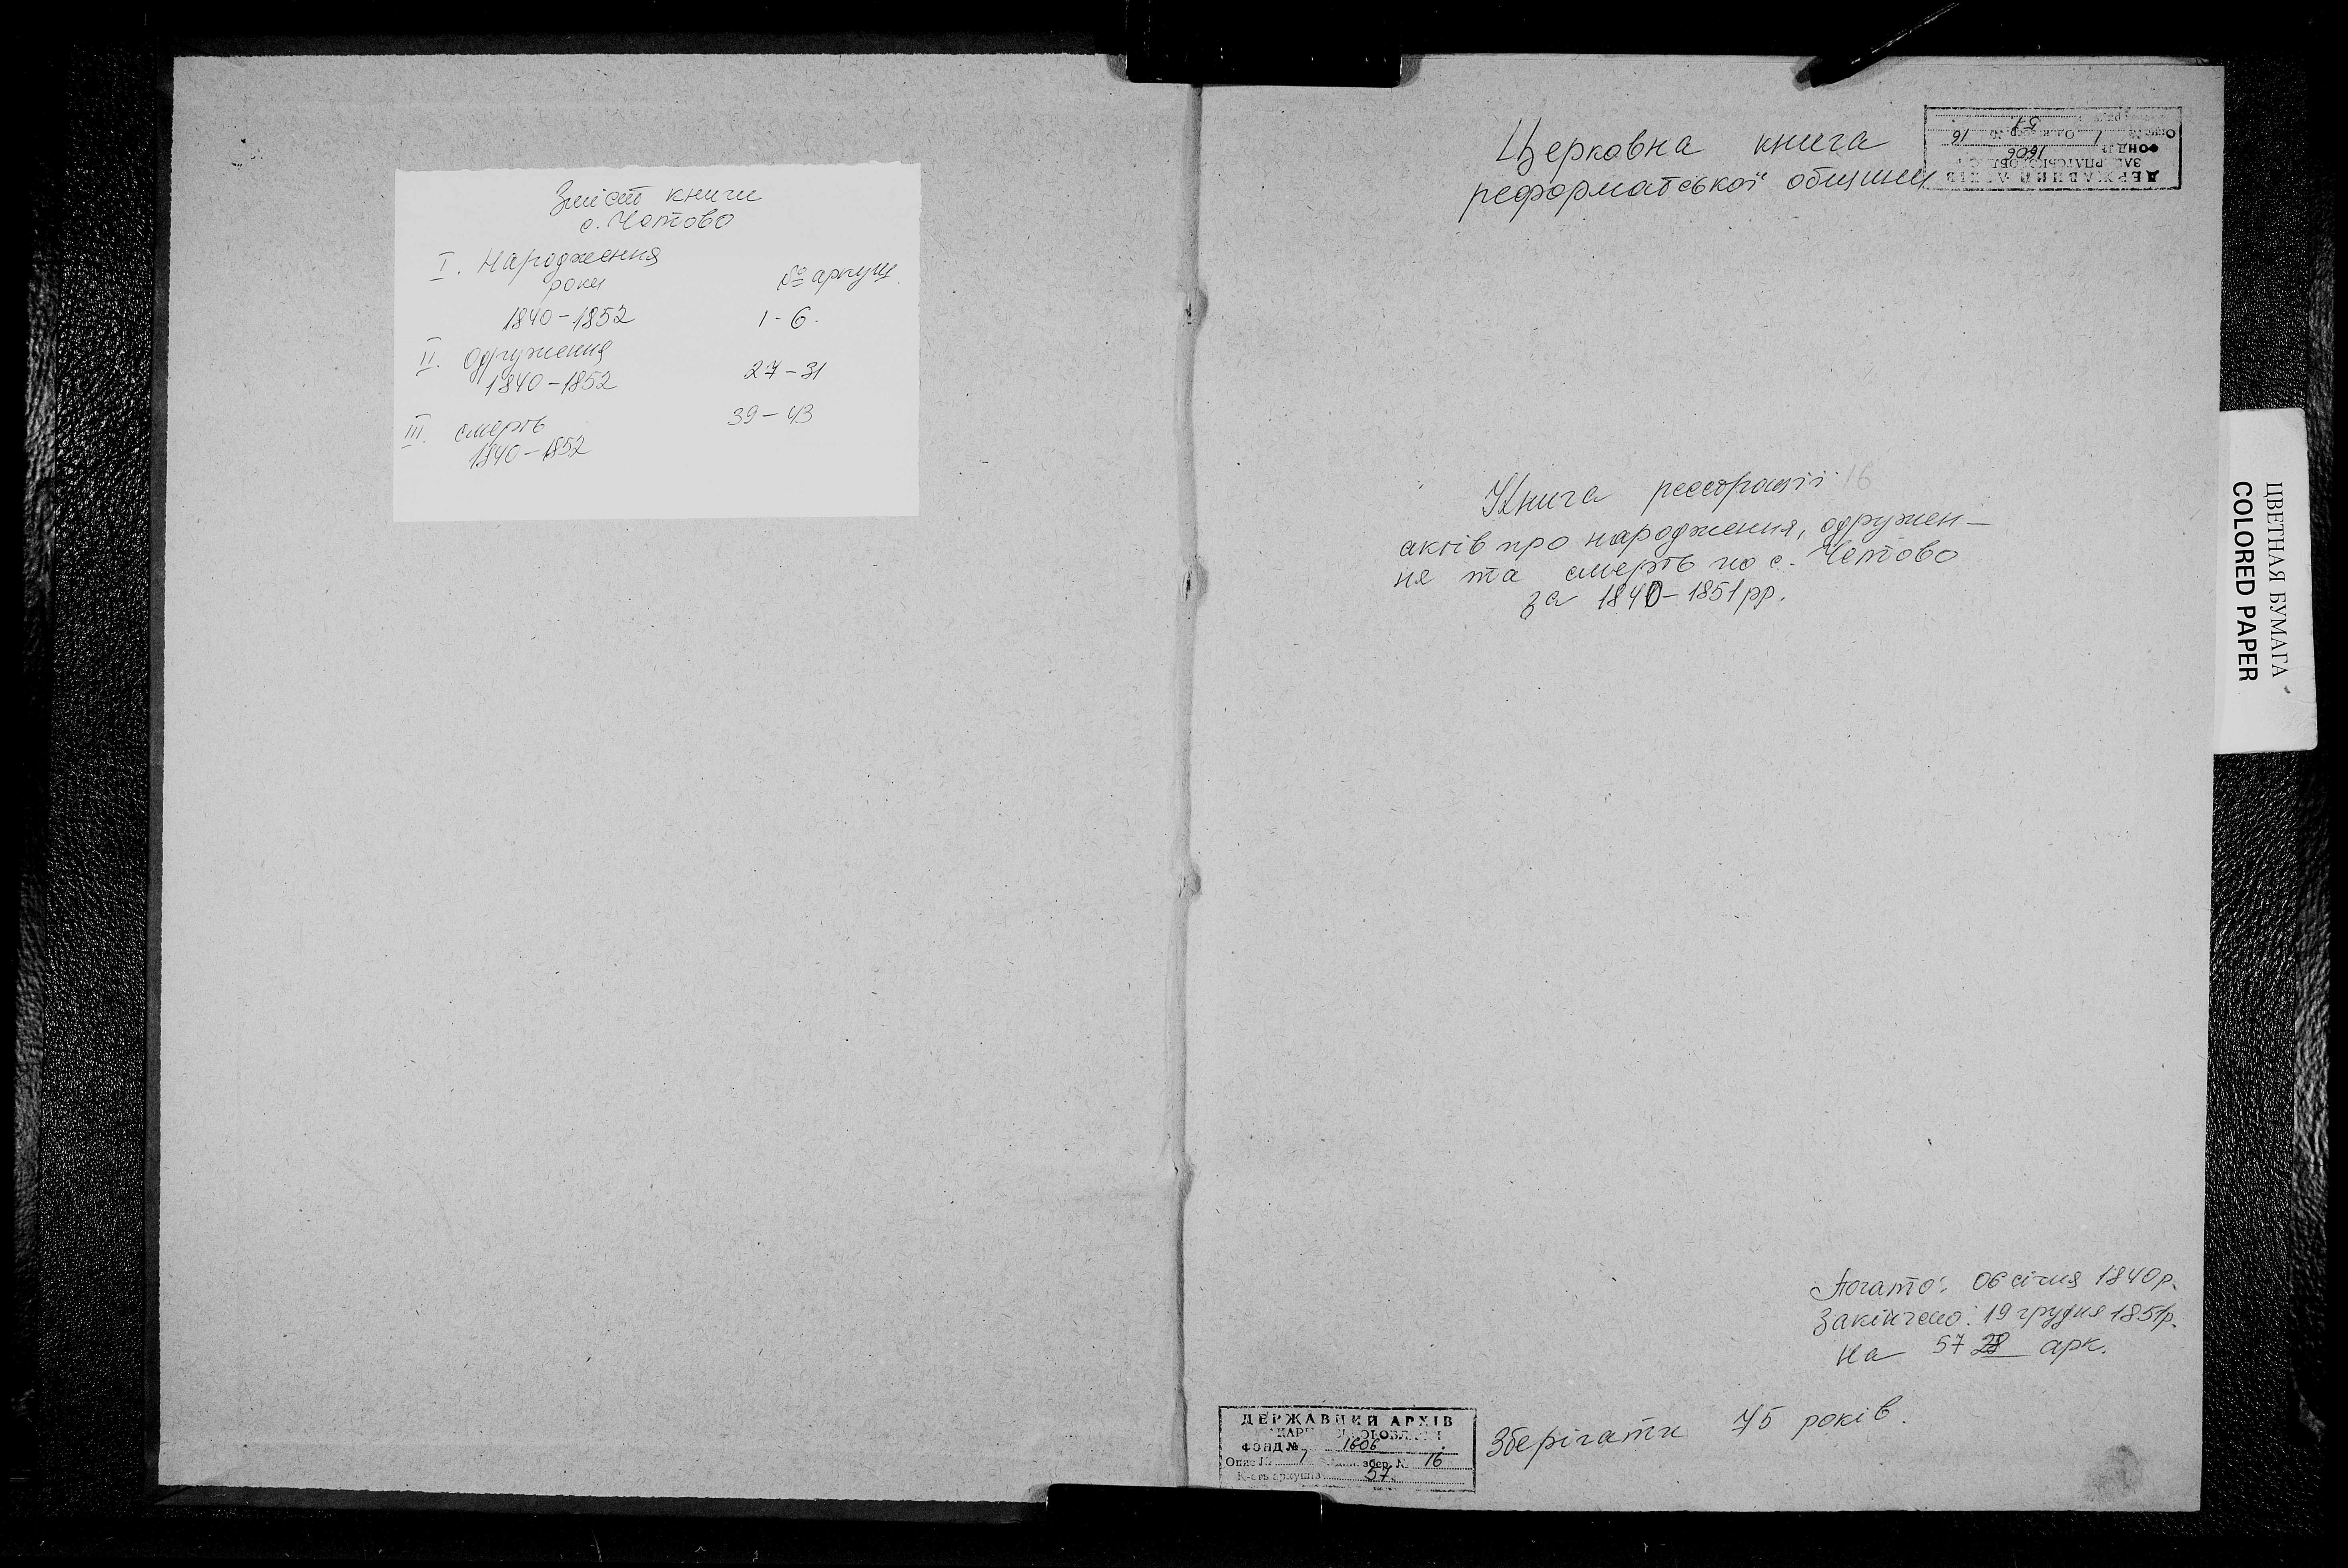 Зміст книги
с. Четово
I. Народження
роки № аркуш.
1840-1852 1-6.
II. Одруження
1840-1852 27-31
III. смерть 39-43
1840-1852
Церковна книга
реформатської общини
ДЕРЖАВНИЙ АРХІВ
ФОНД № 1606
Опис № 1 16
57
Книга реєстрації 16
актів про народження, одружен-
ня та смерть по с. Четово
за 1840-1851 рр.
ЦВЕТНАЯ БУМАГА
COLORED PAPER
Почато: 06 січня 1840 р.
Закінчено: 19 грудня 1851р.
на 57 28 арк.
Зберігати 75 років.
ДЕРЖАВНИЙ АРХІВ
ФОНД № 1606
Опис № 1 збер. № 16
К-сть аркушів 57